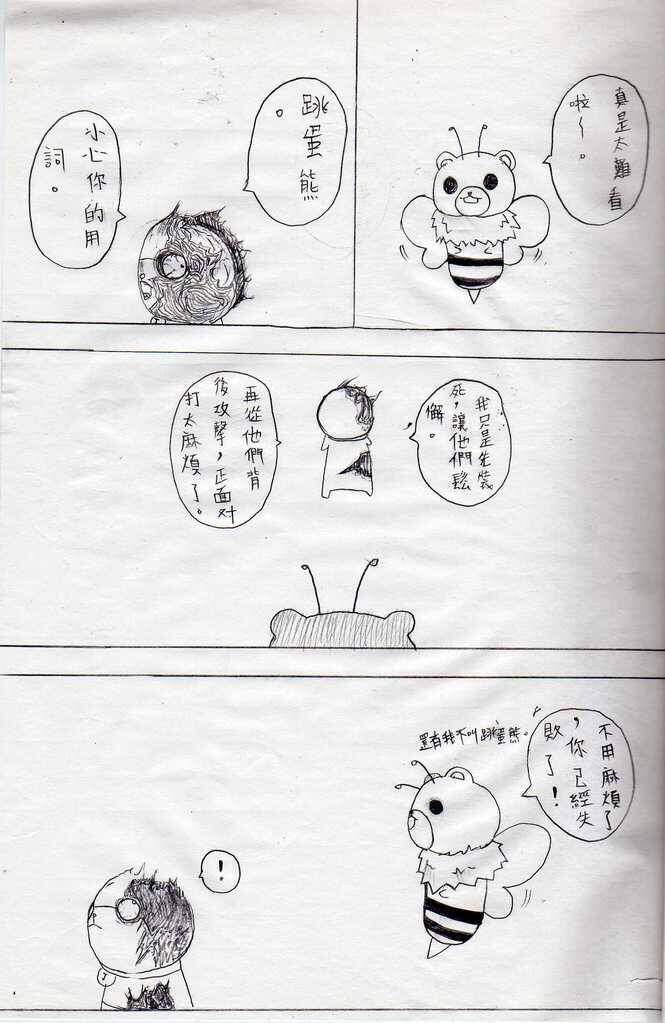 真是太難看
啦～。
跳蛋熊
。
小心你的用
詞。
我只是先裝
死，讓他們鬆
懈。
再從他們背
後攻擊，正面对
打太麻煩了。
不用麻煩了
，你已經失
敗了！
還有我不叫跳蛋熊。
！